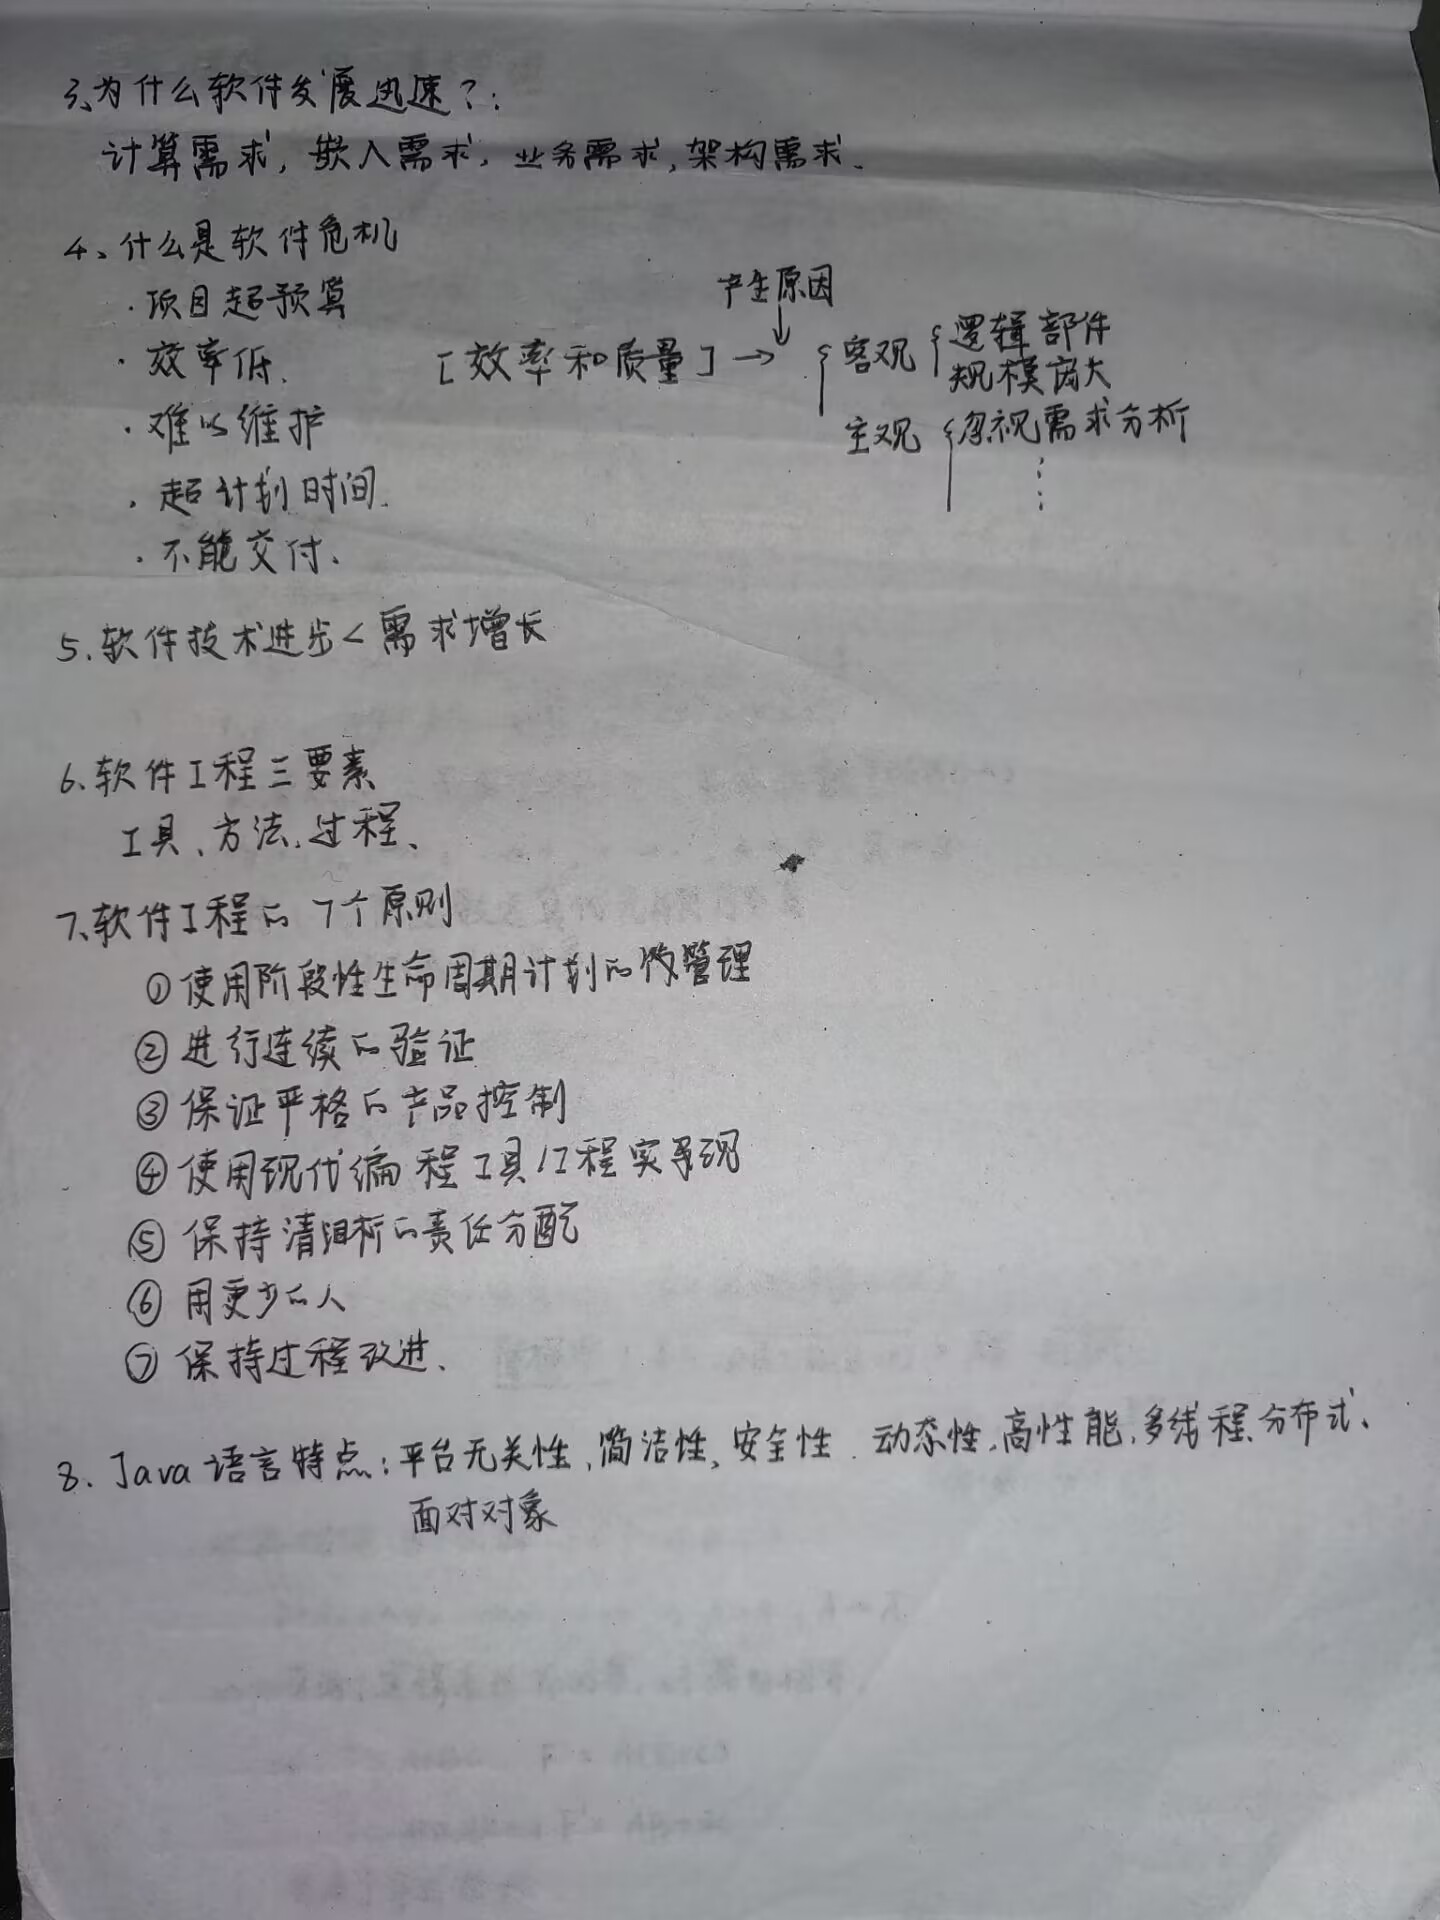 3、为什么软件发展迅速?:
计算需求, 嵌入需求, 业务需求, 架构需求.
4、什么是软件危机
·项目超预算
·效率低.
·难以维护
·超计划时间.
·不能交付.
[效率和质量] →
产生原因
↓
{ 客观 { 逻辑部件
规模高大
主观 { 忽视需求分析
⋮
5.软件技术进步<需求增长
6.软件工程三要素
工具、方法、过程、
7.软件工程的7个原则
①使用阶段性生命周期计划的 管理
②进行连续的验证
③保证严格的产品控制
④使用现代编程工具/工程实 现
⑤保持清晰的责任分配
⑥用更少的人
⑦保持过程改进.
8. Java语言特点:平台无关性、简洁性、安全性.动态性、高性能、多线程、分布式、
面对对象